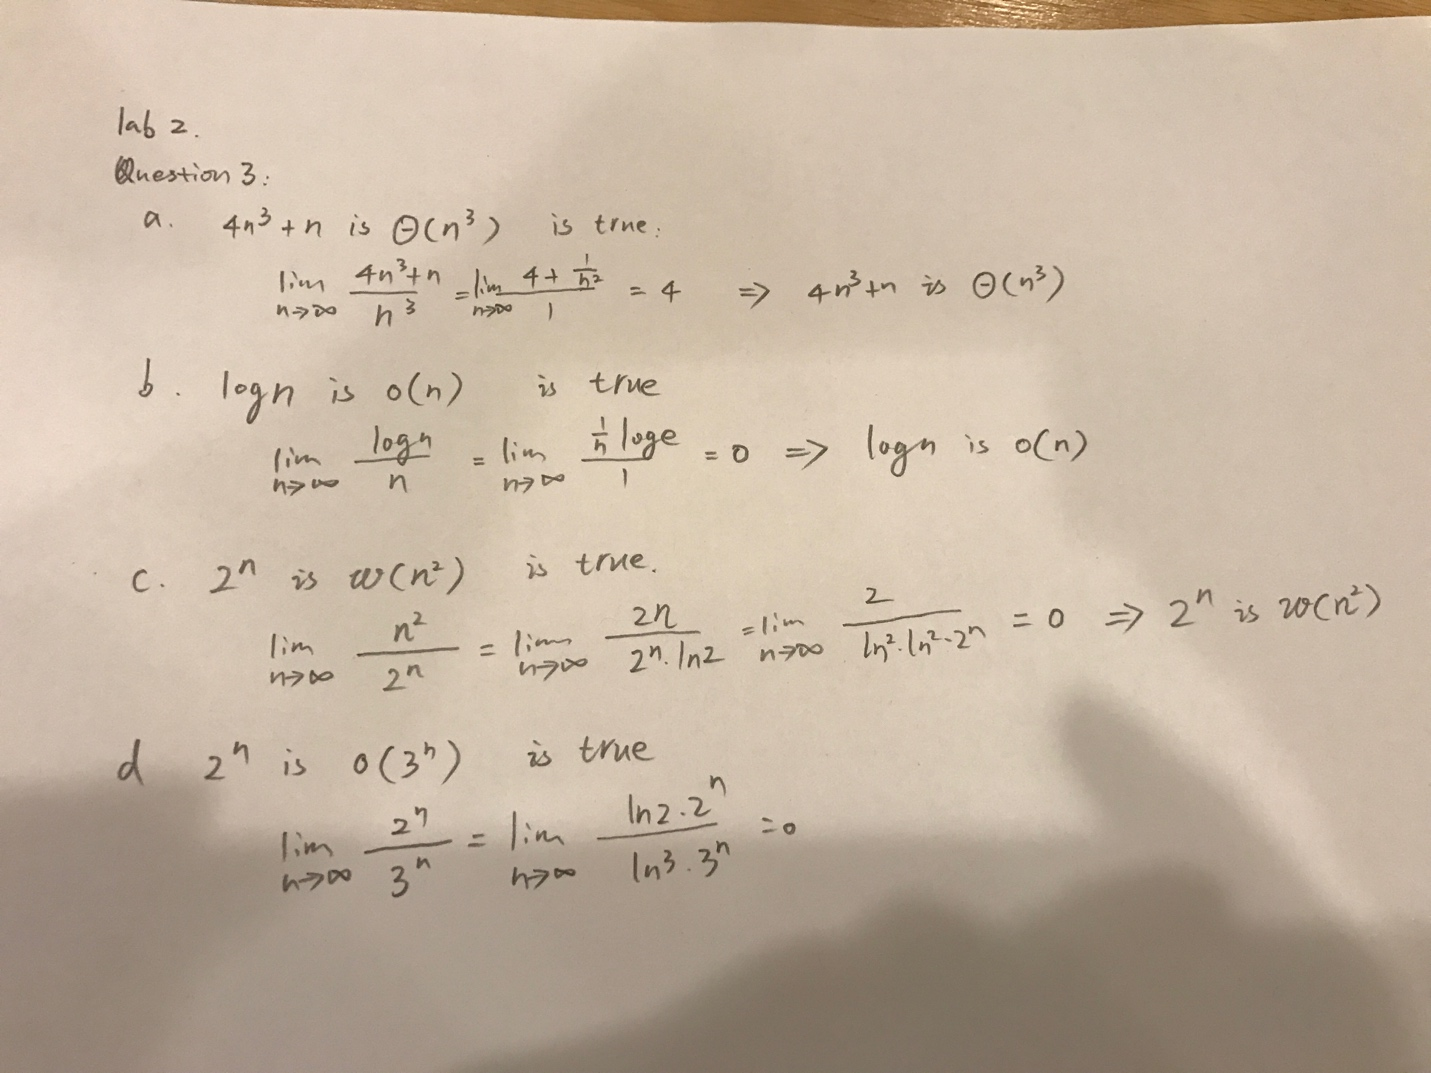 lab 2.
Question 3:
a. 4n³+n is Θ(n³) is true:
lim n→∞ (4n³+n)/n³ = lim n→∞ (4+1/n²)/1 = 4 ⇒ 4n³+n is Θ(n³)
b. logn is o(n) is true
lim n→∞ logn/n = lim n→∞ (1/n loge)/1 = 0 ⇒ logn is o(n)
c. 2ⁿ is ω(n²) is true.
lim n→∞ n²/2ⁿ = lim n→∞ 2n/(2ⁿ·ln2) = lim n→∞ 2/(ln²·ln²·2ⁿ) = 0 ⇒ 2ⁿ is ω(n²)
d 2ⁿ is o(3ⁿ) is true
lim n→∞ 2ⁿ/3ⁿ = lim n→∞ (ln2·2ⁿ)/(ln3·3ⁿ) = 0